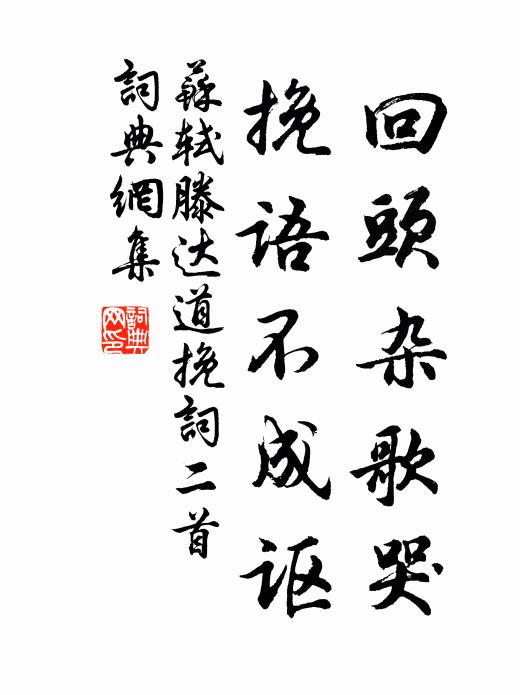 回頭杂歌哭
挽語不成讴
蘇轼滕达道挽詞二首
詞典網集
詞典网印